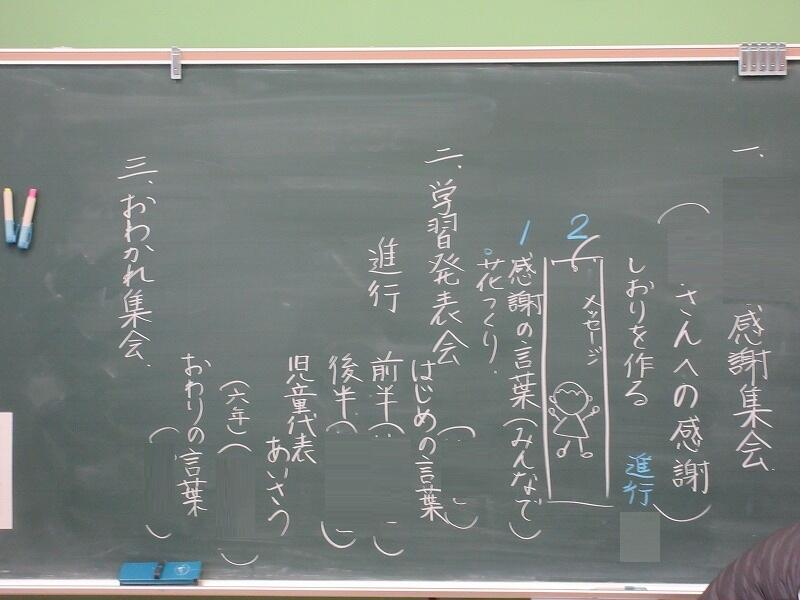 一、感謝集会
（さんへの感謝）
しおりを作る 進行
2
メッセージ
1 感謝の言葉（みんなで）
。花つくり.
二、学習発表会
はじめの言葉（ ）
進行 前半（ ）
後半（ ）
児童代表
あいさつ
（六年）（ ）
おわりの言葉
（ ）
三、おわかれ集会